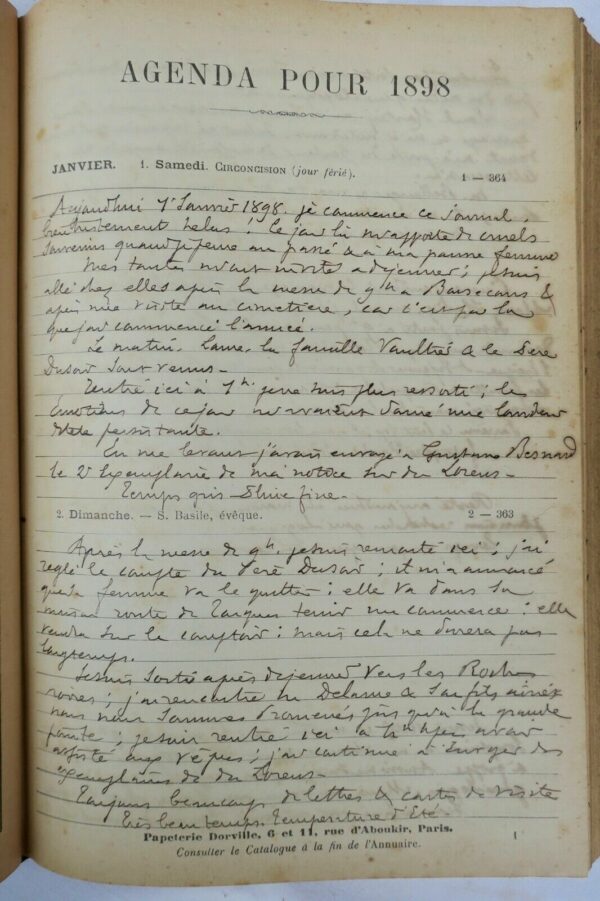 AGENDA POUR 1898
JANVIER. 1. Samedi. CIRCONCISION (jour férié). 1 — 364
Aujourd'hui 1er Janvier 1898. je commence ce Journal.
bien tristement helas! Ce jour là m'apporte de cruels
souvenirs quand je pense au passé & à ma pauvre femme
Mes tantes m'ont invité à déjeuner; je suis
allé chez elles après la messe de 9h à &
après une visite au cimetière, car c'est par là
que j'ai commencé l'année.
Le matin, la famille & le Père
Dusoir sont venus.
Rentré ici à je ne suis plus ressorti; les
émotions de ce jour m'avaient donné une lourdeur
de tête persistante.
En me levant j'avais envoyé à Gustave Besnard
le 2e exemplaire de ma notice sur du
Temps gris pluie fine.
2. Dimanche. — S. Basile, évêque. 2 — 363
Après la messe de 9h. je suis remonté ici; j'ai
reglé le compte du Père Dusoir; il m'a annoncé
que sa femme va le quitter: elle va dans sa
maison route de tenir un commerce: elle
vendra sur le comptoir: mais cela ne durera pas
longtemps.
Je suis sorti après déjeuner vers les Roches
noires; j'ai rencontré Mr Delarue & son fils
nous nous sommes promenés jusqu'à la grande
; je suis rentré ici à 4h après avoir
assisté aux vêpres; j'ai continué à envoyer des
exemplaires de du
Toujours beaucoup de lettres & cartes de visite
Très beau temps. Température d'Eté.
Papeterie Dorville, 6 et 11, rue d'Aboukir, Paris. 1
Consulter le Catalogue à la fin de l'Annuaire.